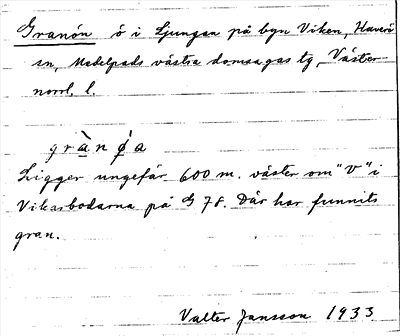 Granön ö i Ljungan på byn Viken, Haverö
sn, Medelpads västra domsagas tg, Väster-
norrl. l.
gràn ǿa
Ligger ungefär 600 m. väster om "V" i
Vikarbodarna på G 78. Där har funnits
gran.
Valter Jansson 1933